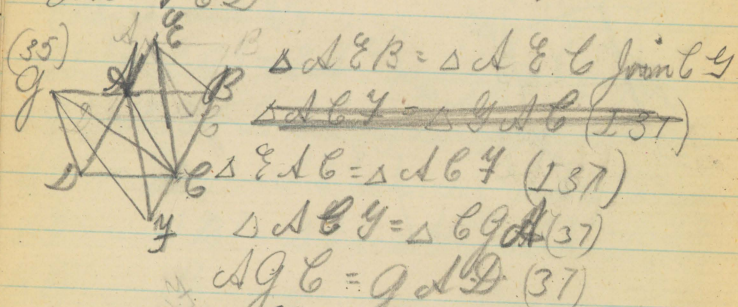 (35)
A E
G A B
D C
F
△ A E B = △ A E C Join C G
△ A C F = △ G A C (I 37)
△ E A C = △ A C F (I 37)
△ A C F = △ C G A (37)
A G C = G A D (37)